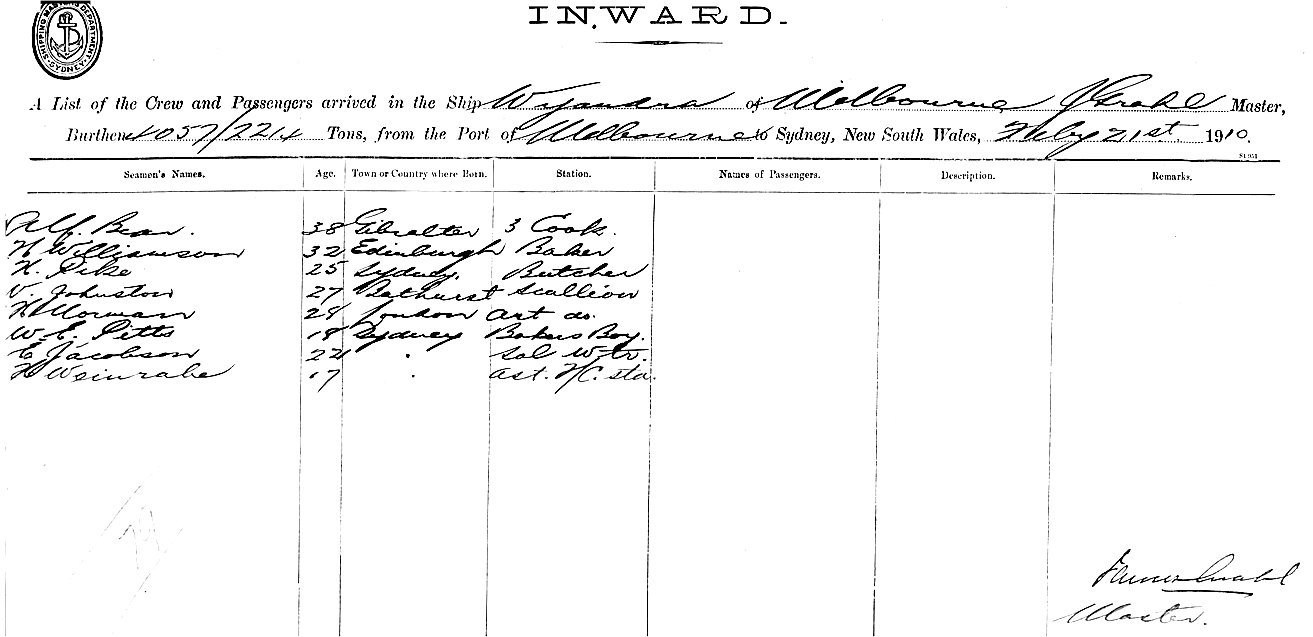 SHIPPING MASTER'S DEPARTMENT. SYDNEY
INWARD.
A List of the Crew and Passengers arrived in the Ship Wyandra of Melbourne J Grahl Master,
Burthen 4057/2214 Tons, from the Port of Melbourne to Sydney, New South Wales, Feby 21st. 1910.
Seamen's Names. Age. Town or Country where Born. Station. Names of Passengers. Description. Remarks.
Alf. Bean. 38 Gibralter 3 Cook.
H Williamson 32 Edinburgh Baker
H. Pike 25 Sydney. Butcher
V. Johnston 27 Bathurst Scullion
H Norman London do.
W. E. Pitts 18 Sydney Bakers Boy.
E Jacobson 22 . Sal Wtr.
H Weinrabe 17 . ast. F/C. std.
James Grahl
Master.